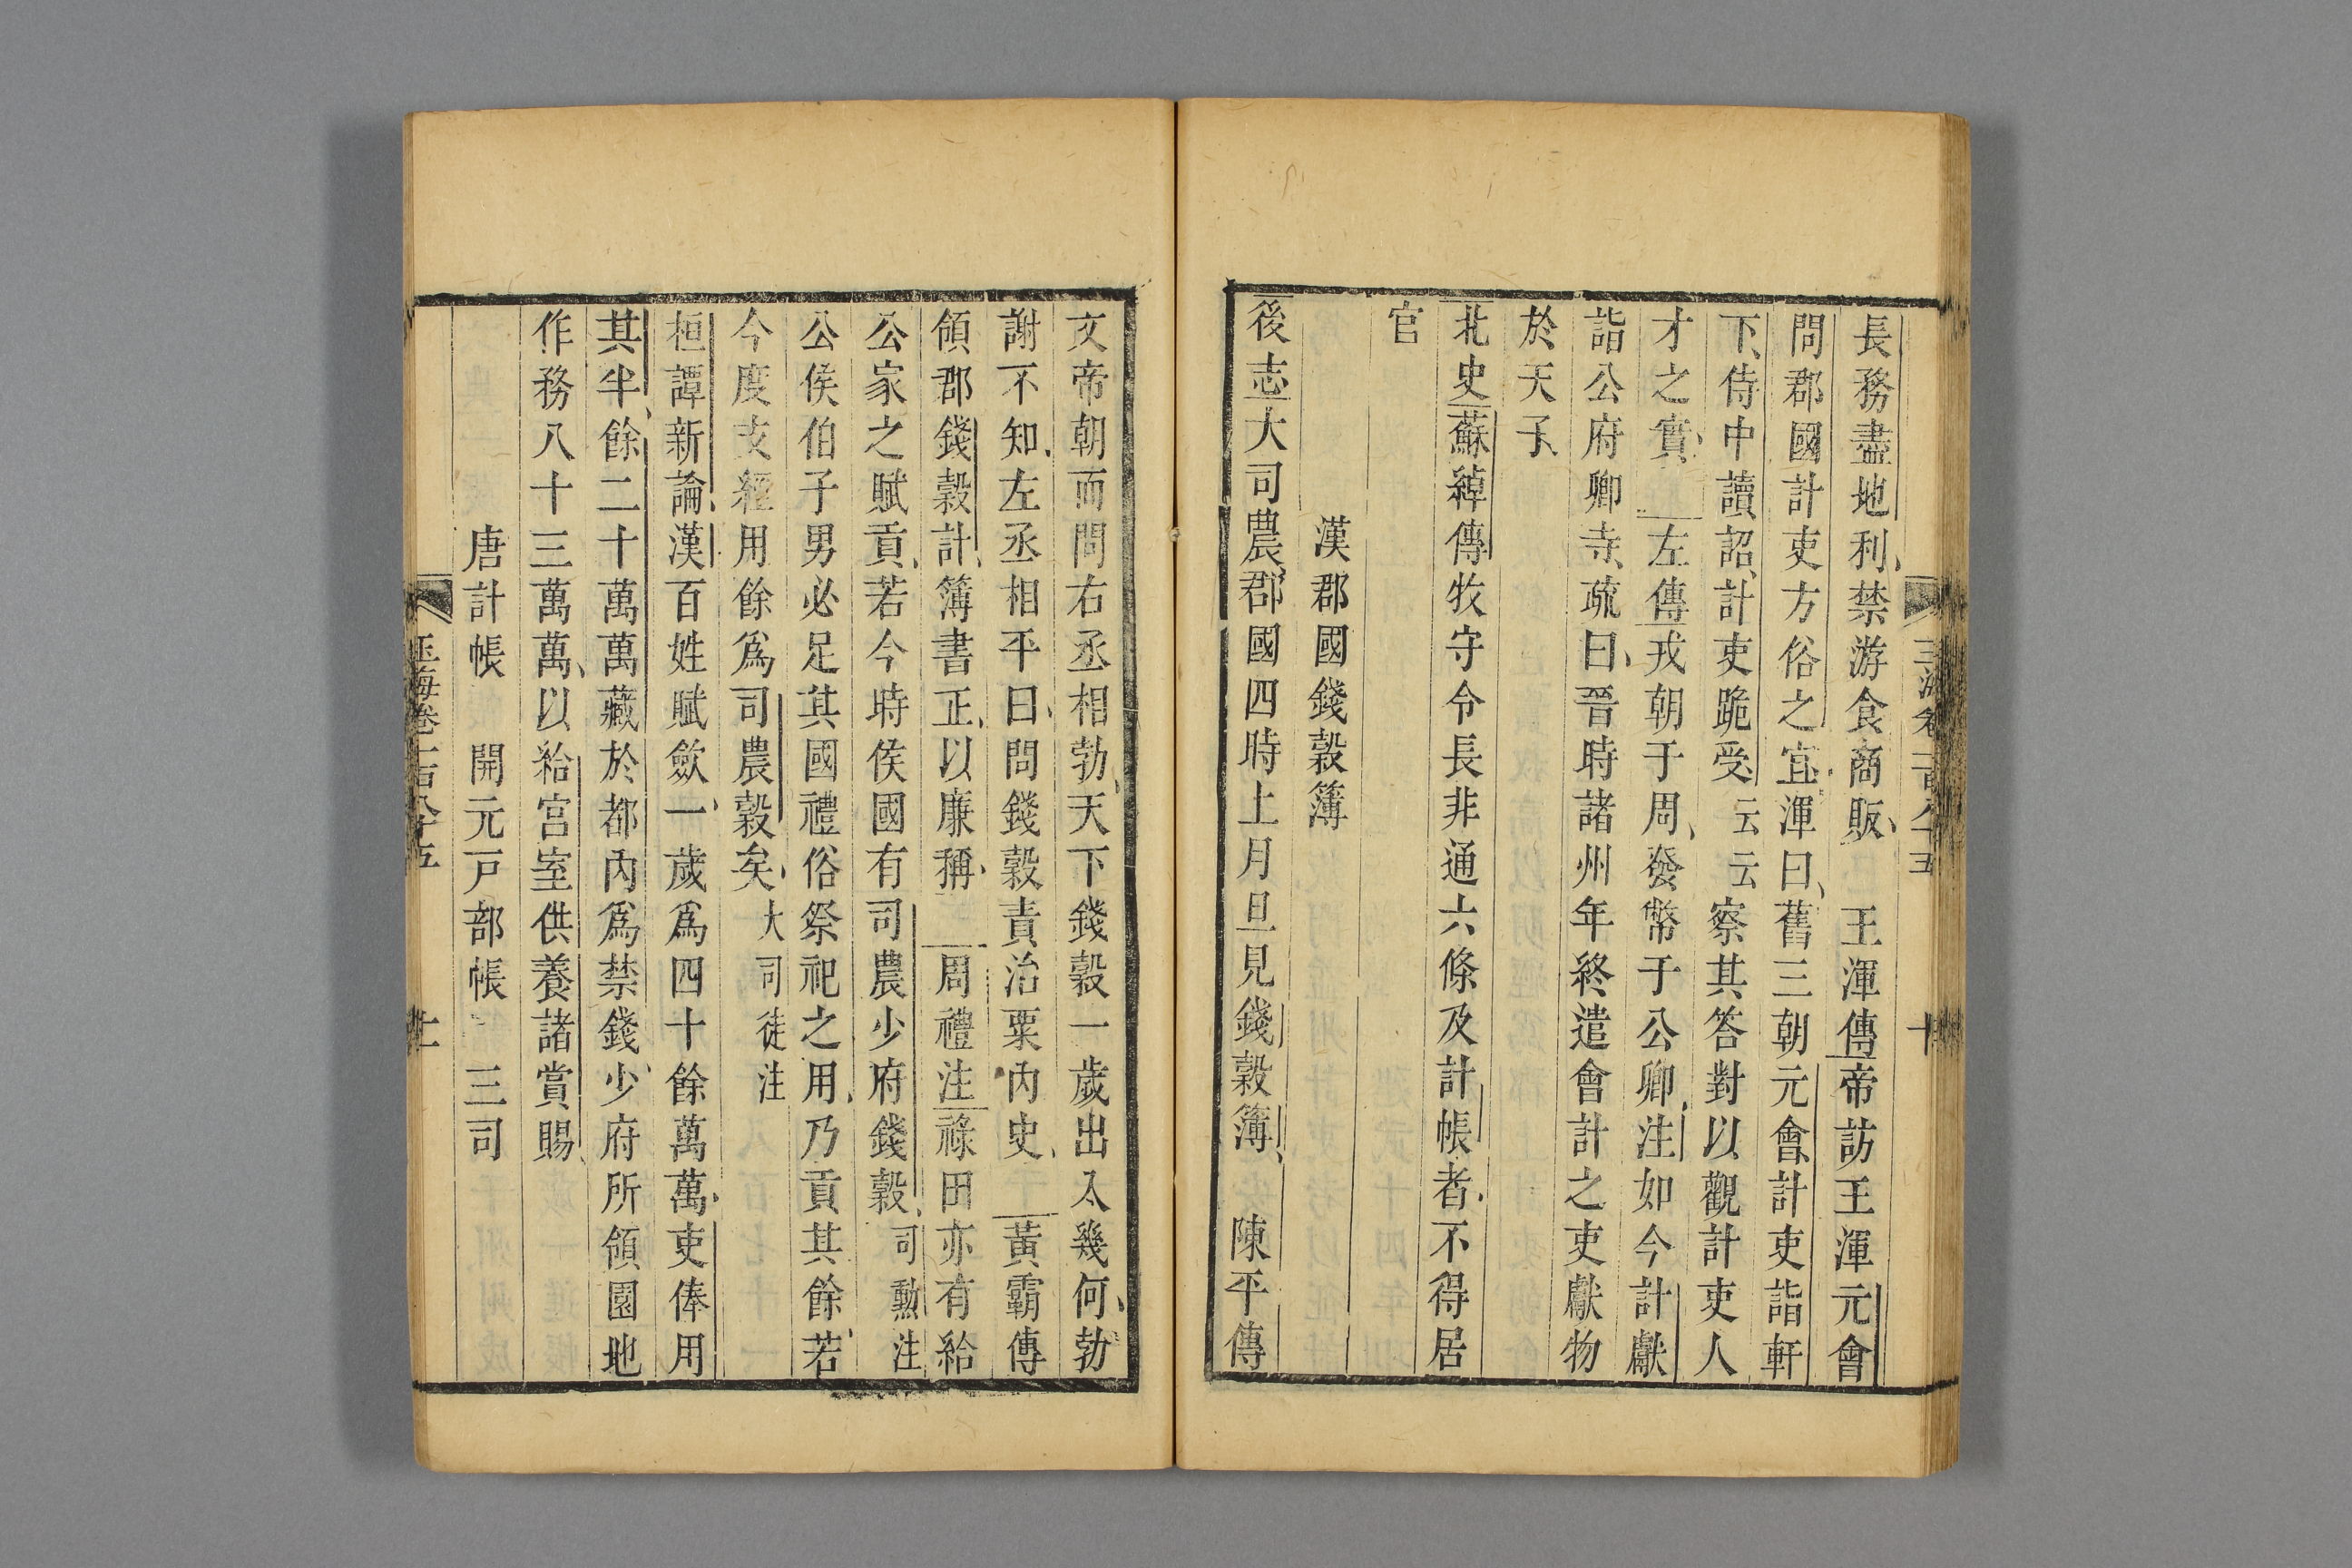 長務盡地利禁游食商販 王渾傳帝訪王渾元會
問郡國計吏方俗之宜渾曰舊三朝元會計吏詣軒
下侍中讀詔計吏跪受云云察其答對以觀計吏人
才之實 左傳戎朝于周發幣于公卿注如今計獻
詣公府卿寺疏曰晉時諸州年終遣會計之吏獻物
於天子
北史蘇綽傳牧守令長非通六條及計帳者不得居
官
漢郡國錢穀簿
後志大司農郡國四時上月旦見錢穀簿 陳平傳
文帝朝而問右丞相勃天下錢穀一歲出入幾何勃
謝不知左丞相平曰問錢穀責治粟內史 黃霸傳
領郡錢穀計簿書正以廉稱 周禮注祿田亦有給
公家之賦貢若今時侯國有司農少府錢穀司勳注
公侯伯子男必足其國禮俗祭祀之用乃貢其餘若
今度支經用餘爲司農穀矣大司徒注
桓譚新論漢百姓賦斂一歲爲四十餘萬萬吏俸用
其半餘二十萬萬藏於都內爲禁錢少府所領園地
作務八十三萬萬以給宮室供養諸賞賜
唐計帳 開元戸部帳 三司
玉海卷一百八十五 十一